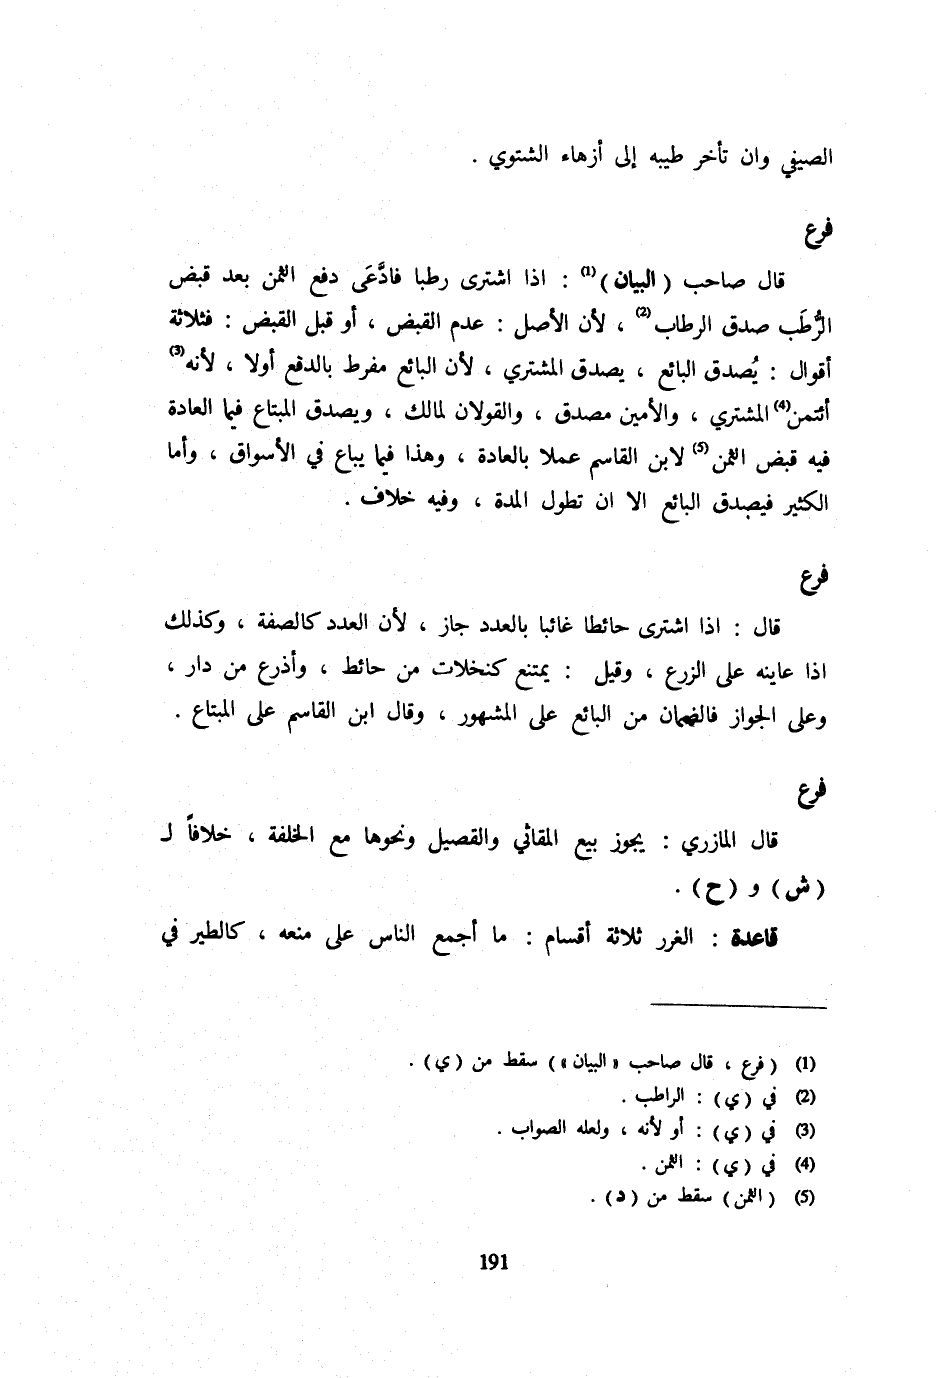 الصيفي وان تأخر طيبه إلى أزهاء الشتوي .
فرع
قال صاحب ( البيان )(1) : اذا اشترى رطبا فادَّعَى دفع الثمن بعد قبض
الرُّطَب صدق الرطاب(2) ، لأن الأصل : عدم القبض ، أو قبل القبض : فثلاثة
أقوال : يُصدق البائع ، يصدق المشتري ، لأن البائع مفرط بالدفع أولا ، لأنه(3)
أئتمن(4) المشتري ، والأمين مصدق ، والقولان لمالك ، ويصدق المبتاع فيما العادة
فيه قبض الثمن(5) لابن القاسم عملا بالعادة ، وهذا فيما يباع في الأسواق ، وأما
الكثير فيصدق البائع الا ان تطول المدة ، وفيه خلاف .
فرع
قال : اذا اشترى حائطا غائبا بالعدد جاز ، لأن العدد كالصفة ، وكذلك
اذا عاينه على الزرع ، وقيل : يمتنع كنخلات من حائط ، وأذرع من دار ،
وعلى الجواز فالضمان من البائع على المشهور ، وقال ابن القاسم على المبتاع .
فرع
قال المازري : يجوز بيع المقاثي والقصيل ونحوها مع الخلفة ، خلافاً لـ
( ش ) و ( ح ) .
قاعدة : الغرر ثلاثة أقسام : ما أجمع الناس على منعه ، كالطير في
(1) ( فرع ، قال صاحب « البيان » ) سقط من ( ي ) .
(2) في ( ي ) : الراطب .
(3) في ( ي ) : أو لأنه ، ولعله الصواب .
(4) في ( ي ) : الثمن .
(5) ( الثمن ) سقط من ( د ) .
191